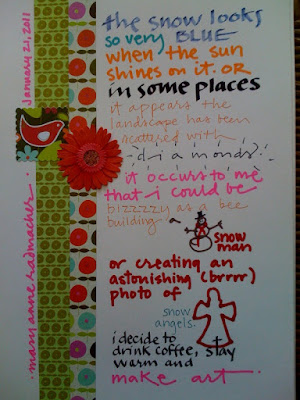 the snow looks
so very BLUE
when the sun
shines on it. OR
in some places
it appears the
landscape has been
scattered with
-d-i-a monds?!
it occurs to me
that i could be
bizzzzy as a bee
building
snow
man
or creating an
astonishing (brrrr)
photo of
snow
angels.
i decide to
drink coffee, stay
warm and
make art.
January 21, 2011
mary anne radmacher.